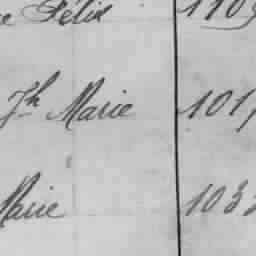 Félix 1109
Jh Marie 101
Marie 103